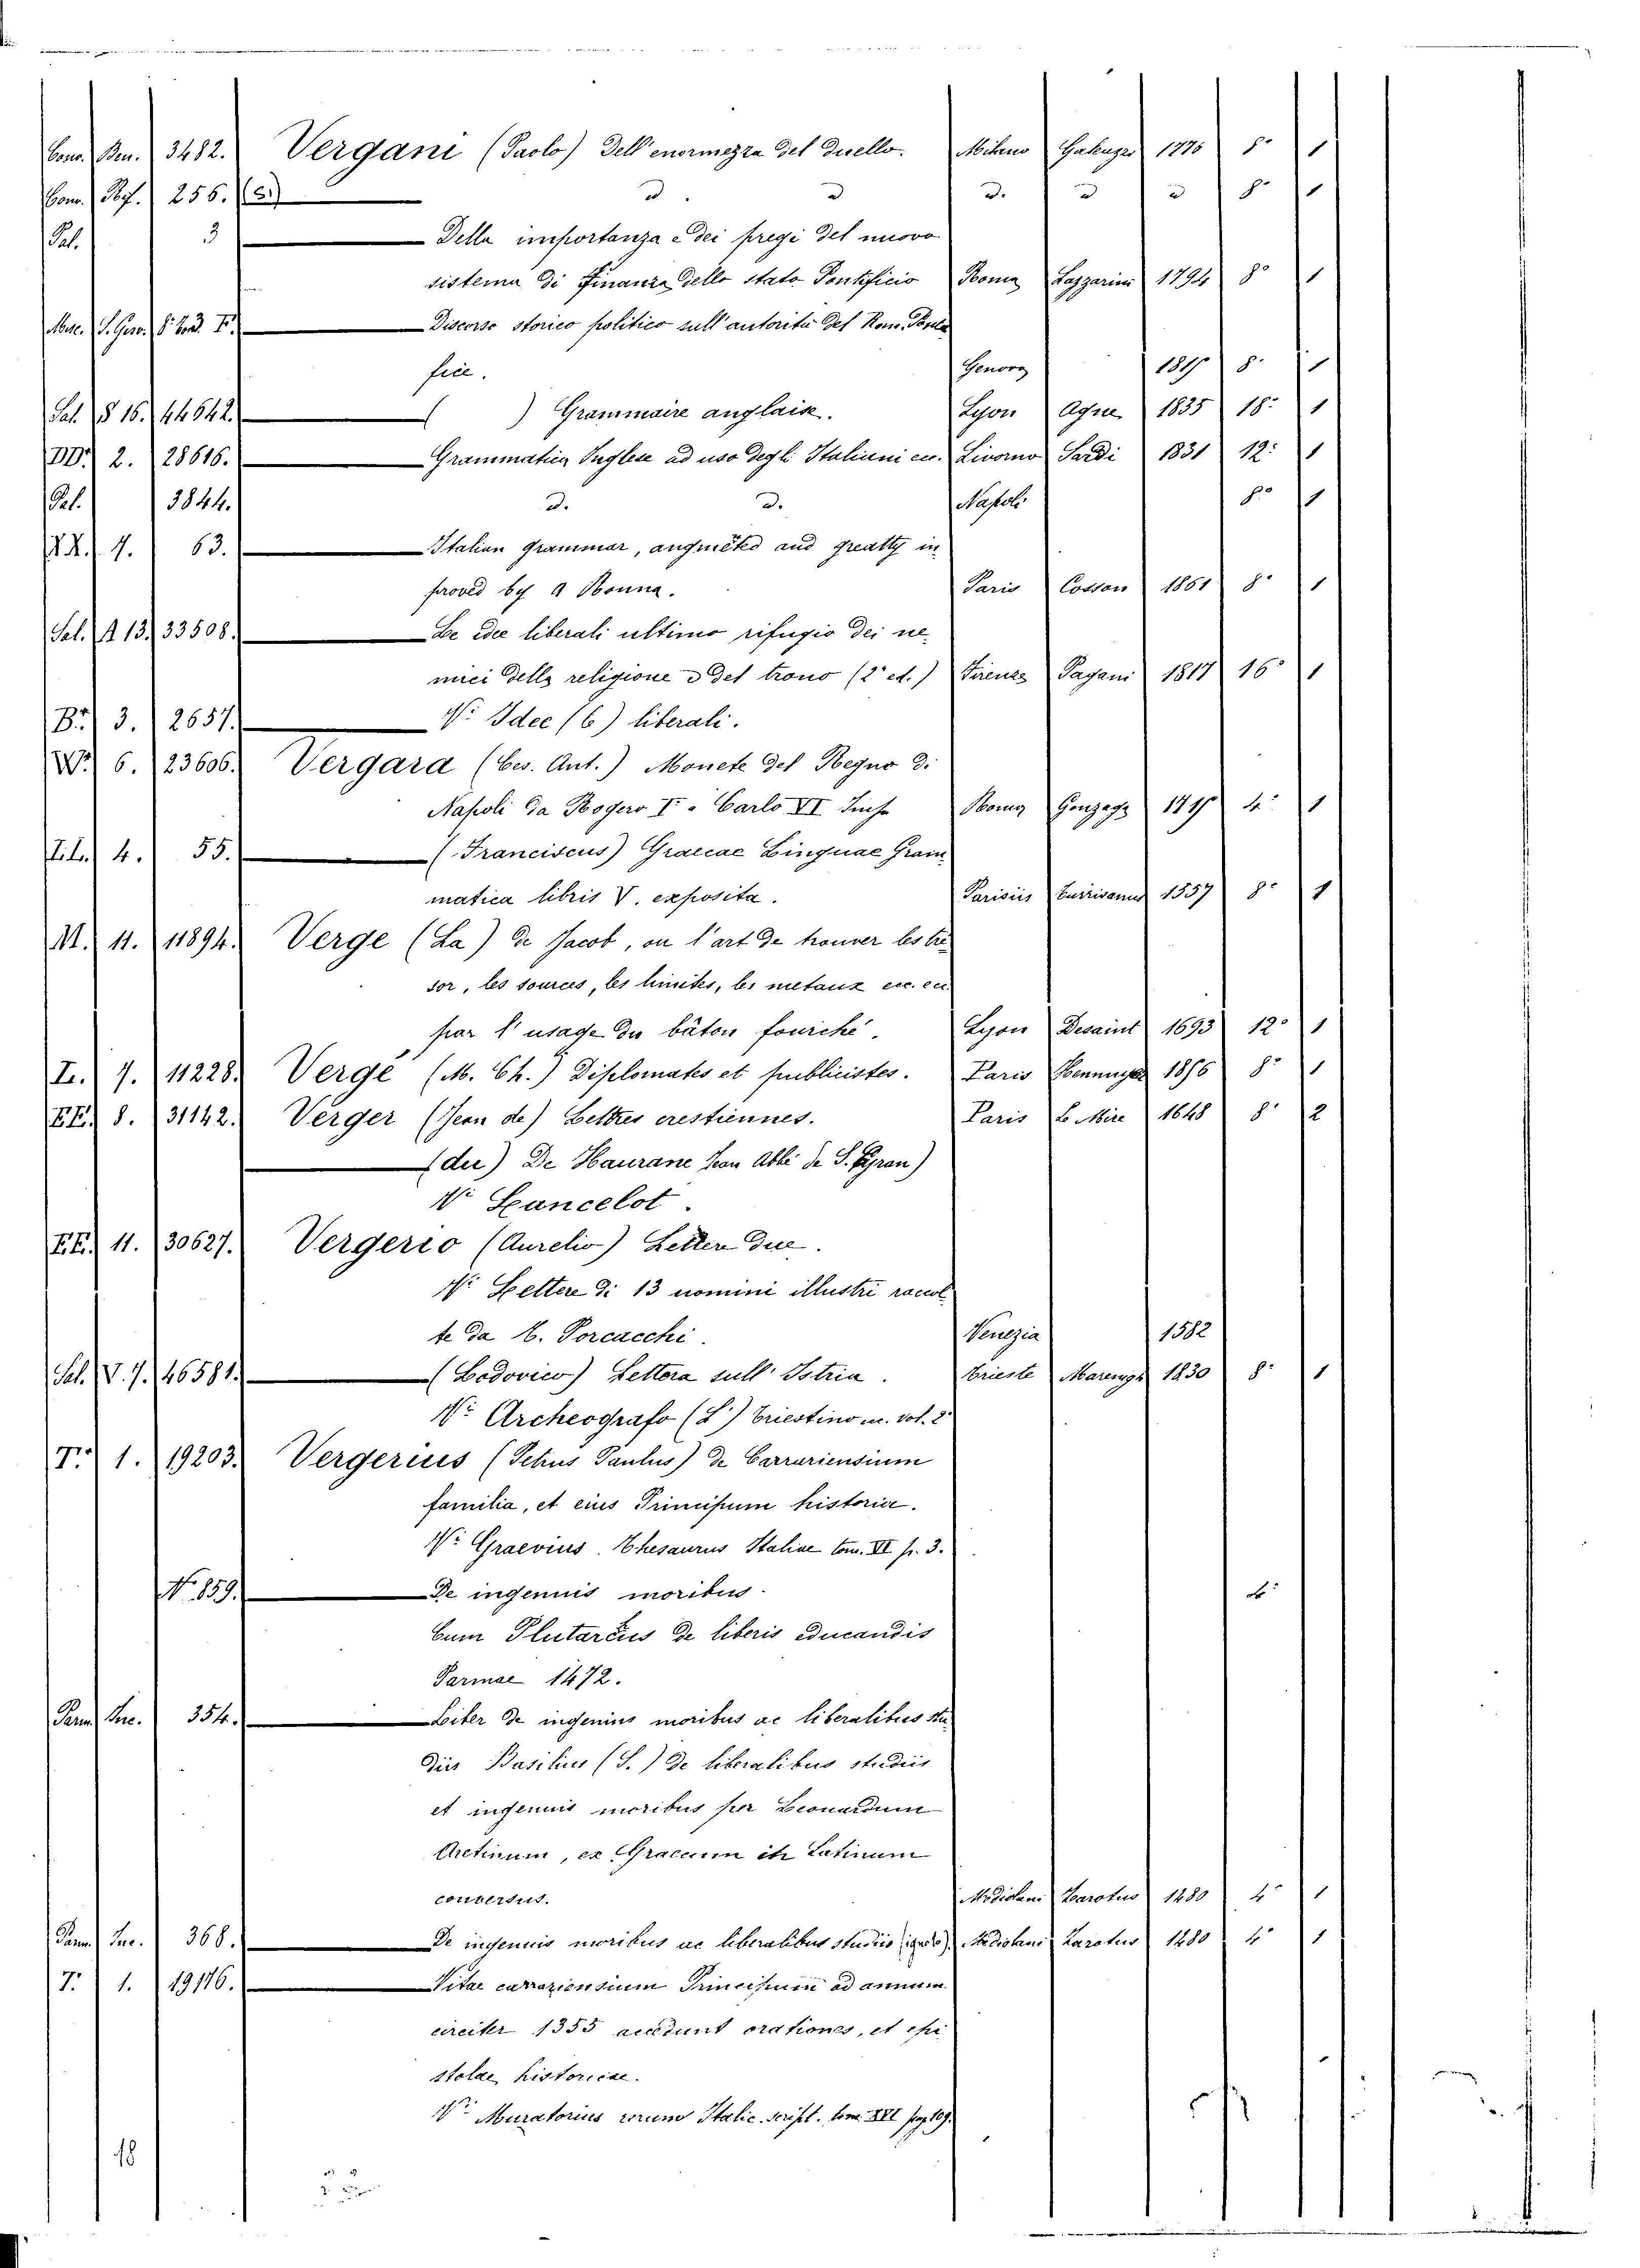 Con. Ben. 3482. Vergani (Paolo) Dell'enormezza del duello. Milano Galeazzi 1776 8º 1
Com. Rif. 256. (8.) d d d. d d 8º 1
Pal. 3 Della importanza e dei pregi del nuovo
sistema di Finanza dello stato Pontificio Roma Lazzarini 1794 8º 1
Discorso storico politico sull'autorità del Rom. Ponte
fice. Genova 8º 1
Sal. § 16. 44642. ( ) Grammaire anglaise. Lyon 1835 18º 1
DD. 2. 28616. Grammatica Inglese ad uso degli Italiani ecc. Livorno Sardi 1831 12º 1
Pal. 3844. d. d. Napoli 8º 1
4. 63. Italian grammar, augmeted and greatly in
proved by a Bonna. Paris Cosson 1861 8º 1
Sal. A 13. 33508. Le idee liberali ultimo rifugio dei ne
mici della religione e del trono (2ª ed.) Firenze Pagani 1817 16º 1
B. 3. 2657. Vi Idee (6) liberali.
W. 6. 23606. Vergara (Ces. Ant.) Monete del Regno di
Napoli da Rogero Iº a Carlo VI Roma Gonzaga 4º 1
4. 55. (Franciscus) Graecae Linguae Gram
matica libris V. exposita. Parisiis 1557 8º 1
M. 11. 11894. Verge (La) de Jacob, ou l'art de trouver les tre
sor, les sources, les limites, les metaux ecc. ecc.
par l'usage du bâton fourché. Lyon Desaint 1693 12º 1
I. 7. 11228. Vergé (M. Ch.) Diplomates et publicistes. Paris 1856 8º 1
EE. 8. 31142. Verger (Jean de) Lettres crestiennes. Paris Le Mire 1648 8º 2
(du) De Haurane Jean Abbé de S. Cyran)
Vi Lancelot.
EE. 11. 30627. Vergerio (Aurelio) Lettere due.
Vi Lettere di 13 uomini illustri raccol
te da T. Porcacchi. Venezia 1582
Sal. V. 7. 46581. (Lodovico) Lettera sull'Istria. Trieste Marenigh 1830 8º 1
Vi Archeografo (L') Triestino in vol. 2º
T. 1. 19203. Vergerius (Petrus Paulus) de Carrariensium
familia, et eius Principum historia.
Vi Graevius. Thesaurus Italiae tom. VI p. 3.
Nº 859. De ingenuis moribus. 4º
Cum Plutarcus de liberis educandis
Parmae 1472.
Pann. Inc. 354. Liber de ingenius moribus ac liberalibus stu
diis Basilius (S.) de liberalibus studiis
et ingenuis moribus per Leonardum
Aretinum, ex Graecum in Latinum
conversus. Mediolani Zarotus 1480 4º 1
Pann. Inc. 368. De ingenuis moribus ac liberalibus studiis Mediolani Zarotus 1480 4º 1
T. 1. 19176. Vitae carrariensium Principum ad annum
circiter 1355 accedunt orationes, et epi
stolae historicae.
Vi Muratorius rerum Italic. script. tom. XVI pag 109.
18